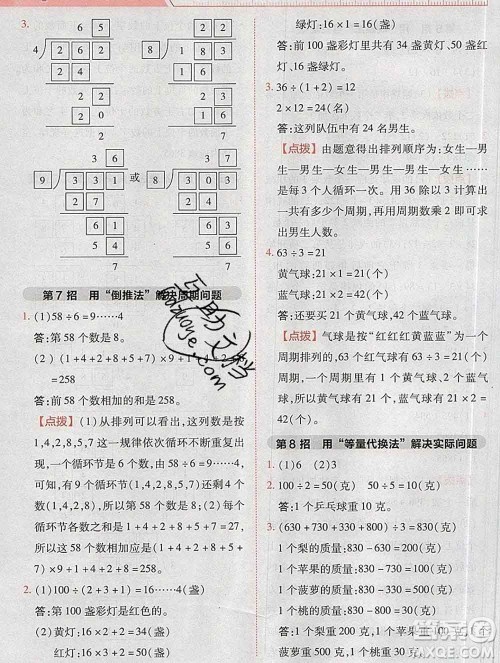 3.
6 5
4 2 6 2
2 4
2 2
2 0
2
3 3
8 2 6 7
2 4
2 7
2 4
3
3 6
9 3 3 1
2 7
6 1
5 4
7
或
3 8
8 3 1 1
2 4
7 1
6 4
7
第7招 用“倒推法”解决周期问题
1. (1)58÷6=9……4
答:第58个数是8。
(2)(1+4+2+8+5+7)×9+1+4+2+8
=258
答:前58个数相加的和是258。
【点拨】(1)从排列可以看出,这列数是按
1,4,2,8,5,7这一规律依次循环不断重复出现,
一个循环节是6个数,由58÷6=9……4可
知,有9个循环节还剩4个数,剩下的4个数
是1,4,2,8,所以第58个数是8。(2)每个
循环节各数之和是1+4+2+8+5+7=27,
所以这58个数相加的和是27×9+1+4+
2+8=258。
2. (1)100÷(3+2+1)=16……4(盏)
答:第100盏彩灯是红色的。
(2)黄灯:16×2+2=34(盏)
红灯:16×3+2=50(盏)
绿灯:16×1=16(盏)
答:前100盏彩灯里共有34盏黄灯、50盏红
灯、16盏绿灯。
3. 36÷(1+2)=12
2×12=24(名)
答:这列队伍中有24名男生。
【点拨】由题意得出排列顺序为:女生—男
生—男生—女生—男生—男生……也就
是每3个人循环一次。用36除以3计算出
一共多少个周期,再用周期数乘2即可求出
男生人数。
4. 63÷3=21
黄气球:21×1=21(个)
蓝气球:21×2=42(个)
答:有21个黄气球,42个蓝气球。
【点拨】气球是按“红红红黄蓝蓝”为一个
周期排列的,63个红气球有63÷3=21(个)
周期,黄气球有21×1=21(个),蓝气球有
21×2=42(个)。
第8招 用“等量代换法”解决实际问题
1. (1)6 (2)3
2. 100÷2=50(克) 50÷5=10(克)
答:1个乒乓球重10克。
3. (630+730+330+800)÷3=830(克)
1个梨的质量:830-730=100(克)
1个苹果的质量:830-630=200(克)
1个菠萝的质量:830-330=500(克)
1个桃的质量:830-800=30(克)
答:1个梨重100克,1个苹果重200克,1个
菠萝重500克,1个桃重30克。